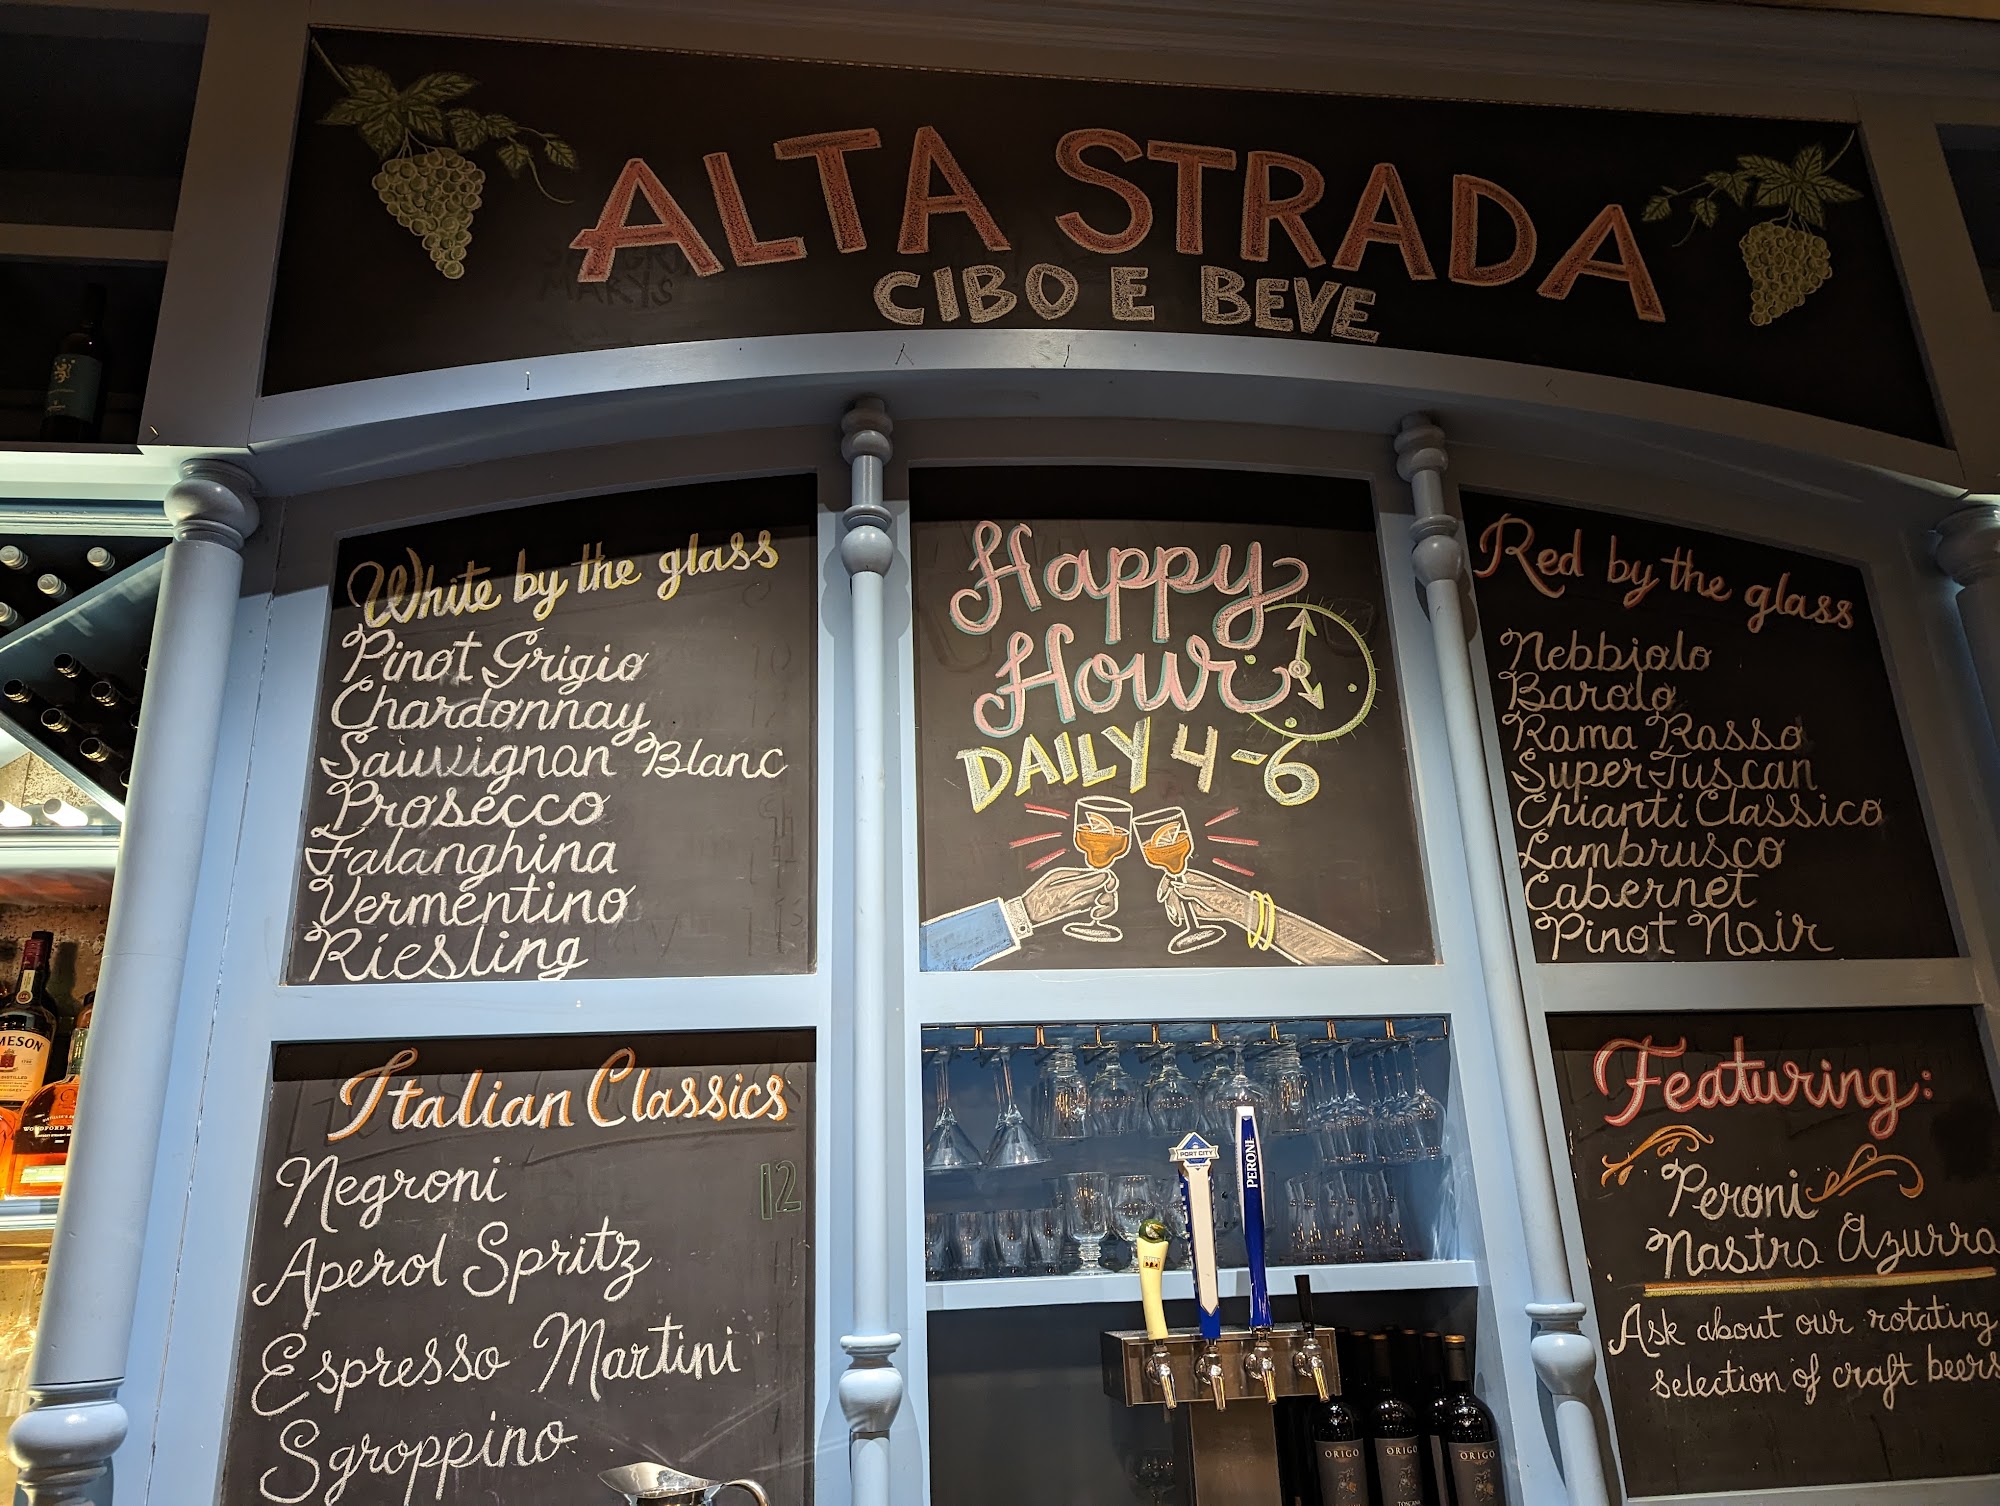 ALTA STRADA
CIBO E BEVE
White by the glass
Pinot Grigio
Chardonnay
Sauvignon Blanc
Prosecco
Falanghina
Vermentino
Riesling
Happy
Hour
DAILY 4-6
Red by the glass
Nebbiolo
Barolo
Rama Rosso
Super-Tuscan
Chianti Classico
Lambrusco
Cabernet
Pinot Noir
Italian Classics
Negroni
12
Aperol Spritz
Espresso Martini
Sgroppino
PORT CITY
PERONI
Featuring:
Peroni
Nastro Azzurra
Ask about our rotating
selection of craft beers
MESON
WOODFORD
ORIGO
ORIGO
ORIGO
TOSCANA